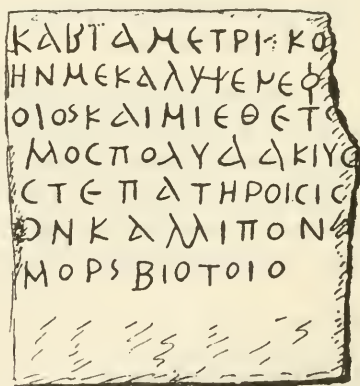 ΚΑΒΙΑΜΕΤΡΙ·ΚΟ
ΗΝΜΕΚΑΛΥΨΕΝΕΦ
ΟΙΟSΚΑΙΜΙΕΘΕΤΟ
ΜΟCΠΟΛΥΔΑΚΙΥC
CΤΕΠΑΤΗΡΟΙCΙC
ΟΝΚΑΛΛΙΠΟΝ
ΜΟΡS ΒΙΟΤΟΙΟ